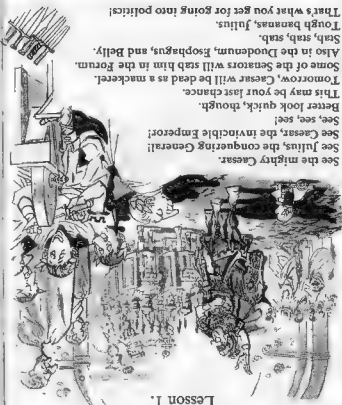 Lesson 1.
See the mighty Caesar.
See Julius, the conquering General!
See Caesar, the invincible Emperor!
See, see, see!
Better look quick, though.
This may be your last chance.
Tomorrow, Caesar will be dead as a mackerel.
Some of the Senators will stab him in the Forum.
Also in the Duodenum, Esophagus, and Belly.
Stab, stab, stab.
Tough bananas, Julius.
That's what you get for going into politics!